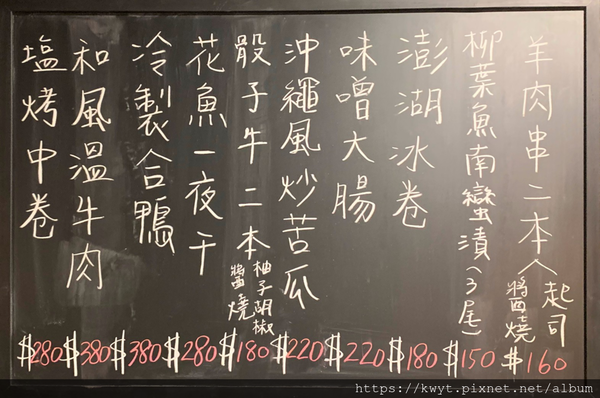 羊肉串二本 起司 醬燒 $160
柳葉魚南蠻漬(3尾) $150
澎湖冰卷 $180
味噌大腸 $220
沖繩風炒苦瓜 $220
骰子牛二本 柚子胡椒 醬燒 $180
花魚一夜干 $280
冷製合鴨 $380
和風溫牛肉 $380
塩烤中卷 $280
https://kwyt.pixnet.net/album